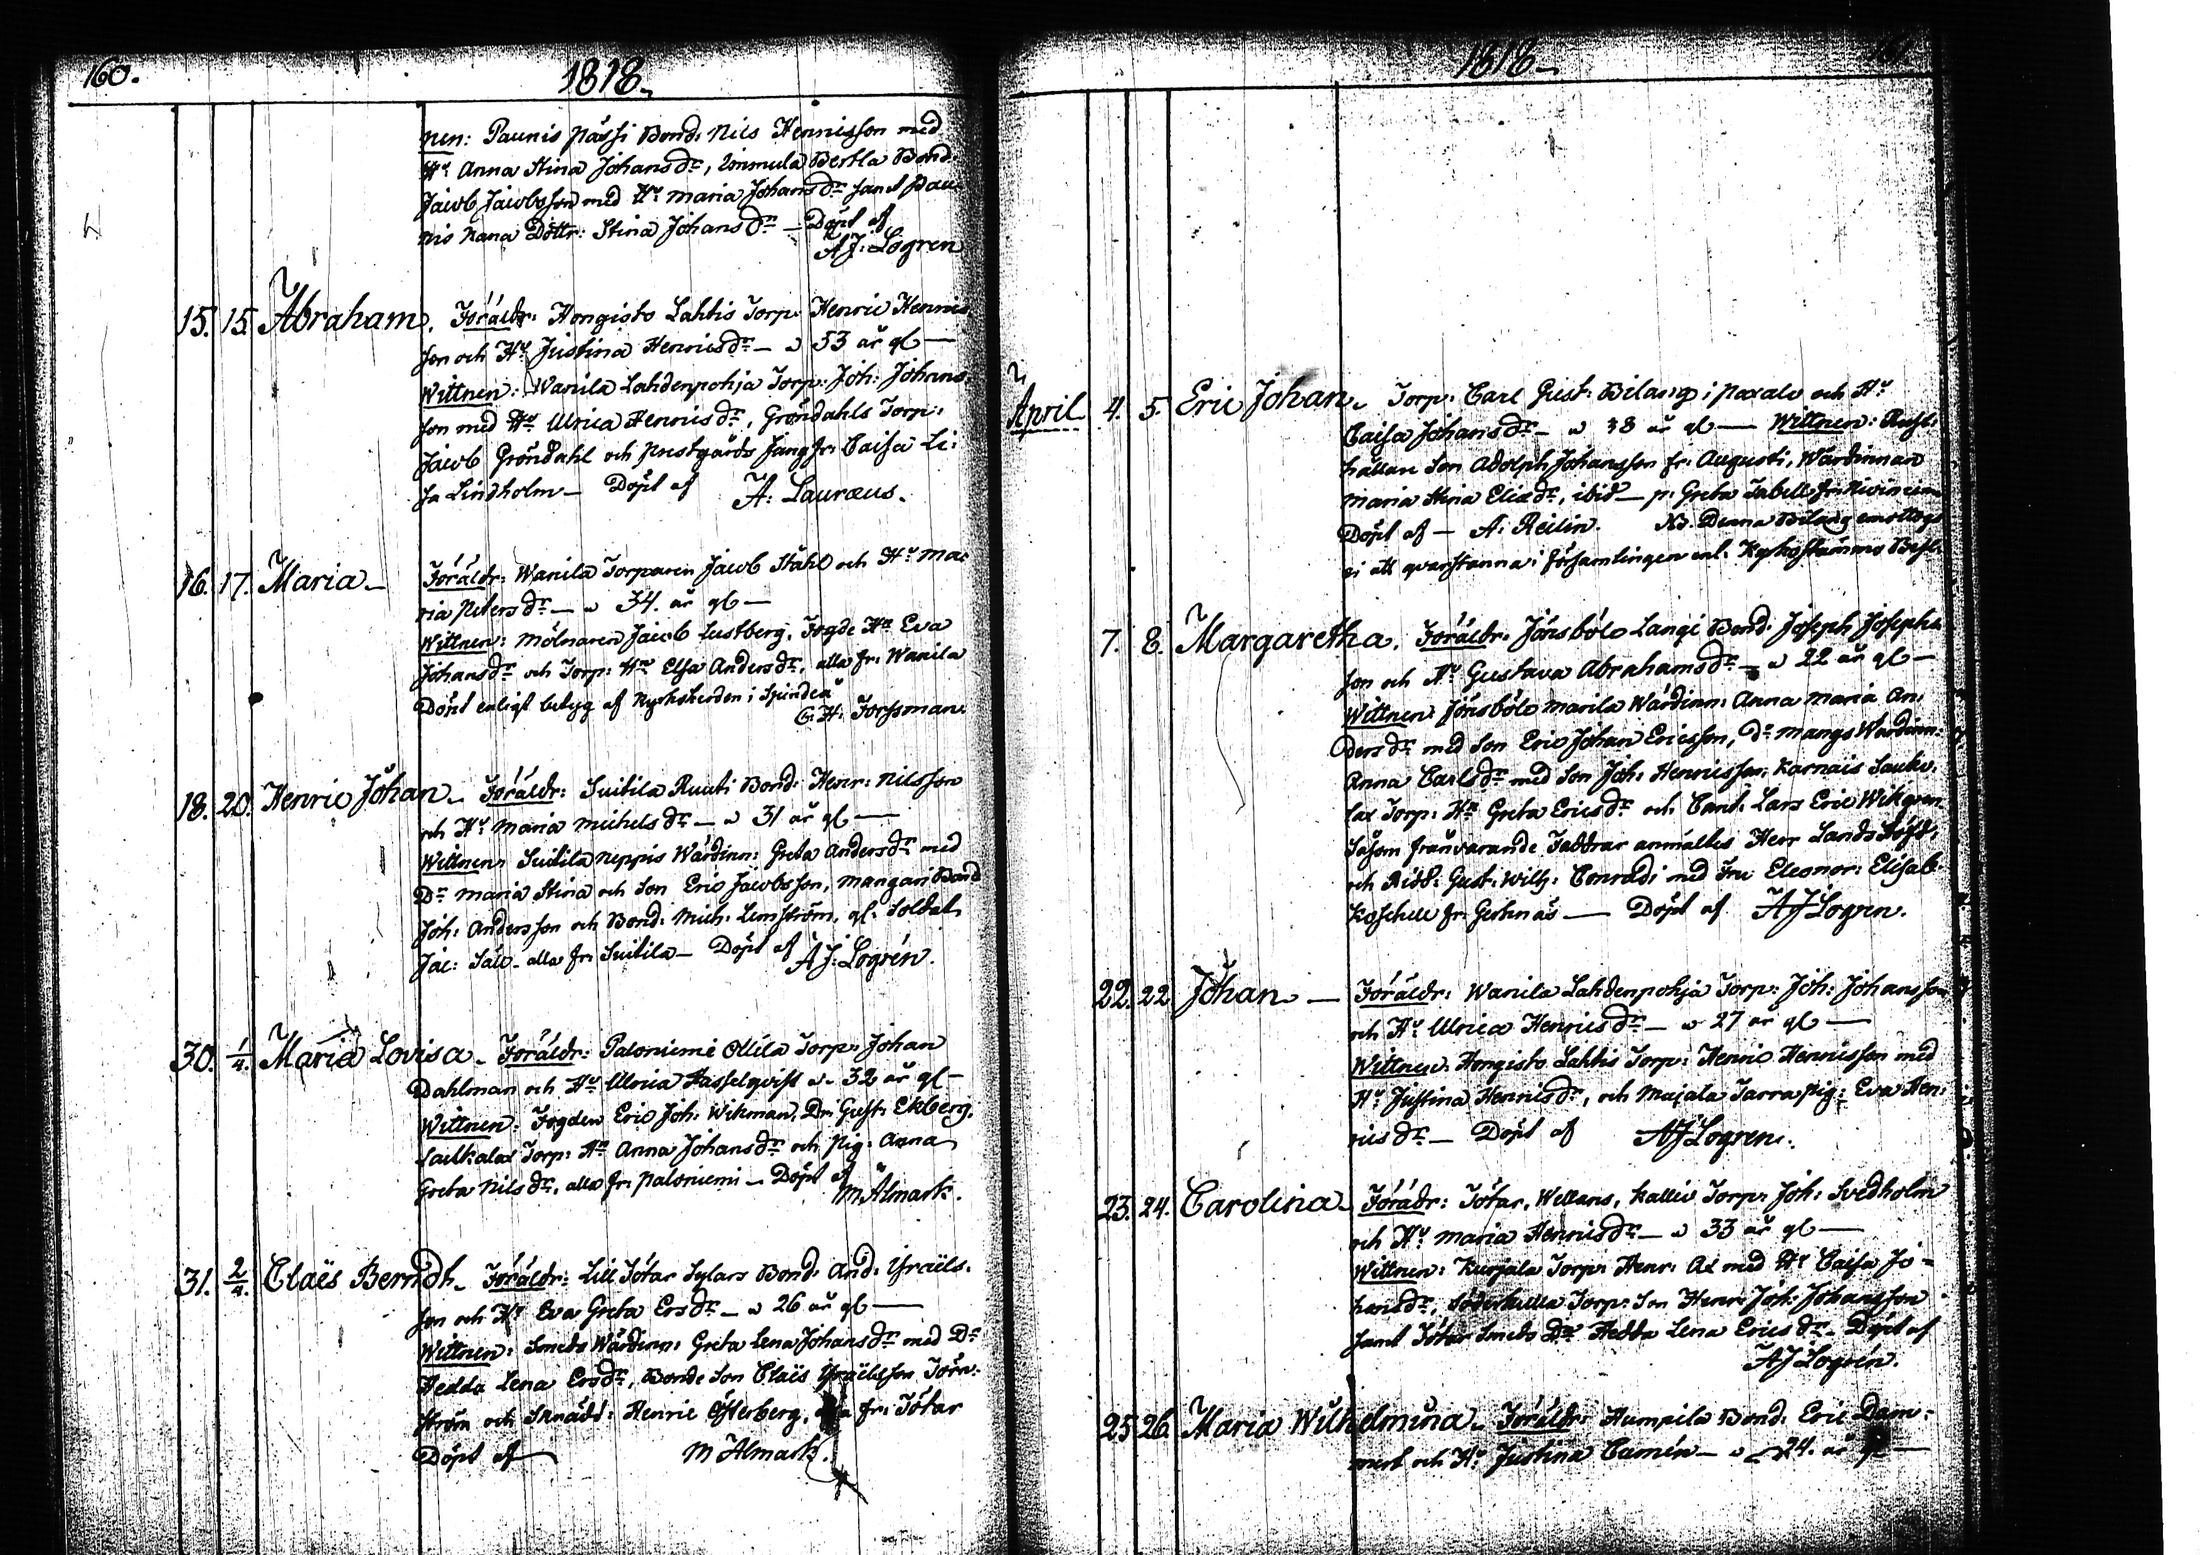 160.
1818.
nen: Paunis Nässi Bond. Nils Henricsson med
Hu Anna Stina Johansdr, Bertla Bond.
Jacob Jacobsson med Hu Maria Johansdr samt Pau-
nis Nana Dottr: Stina Johansdr — Döpt af
AJ: Logren
15. 15. Abraham. Föräldr: Hongisto Lahtis Torp. Henric Henrics
son och Hu Justina Henricsdr — a 53 år gl —
Wittnen: Wanila Lahdenpohja Torp: Joh: Johans-
son med Hu Ulrica Henricsdr, Gröndahls Torp:
Jacob Gröndahl och Prestgårds Jungfr: Caisa Li-
sa Lindholm — Döpt af A: Lauræus.
16. 17. Maria — Föräldr: Wanila Torparen Jacob Ståhl och Hu Ma-
ria Petersdr — a 34. år gl —
Wittnen: Mölnaren Jacob Lustberg, Fogde Hu Eva
Johansdr och Torp: Hu Elsa Andersdr, alla fr: Wanila
Döpt enligt betyg af Kyrkoherden i Spindeå
G.H: Forssman.
18. 20. Henric Johan — Föräldr: Suitila Ruuti Bond. Henr: Nilsson
och Hu Maria Michelsdr — a 31 år gl —
Wittnen: Suitila Neppis Wärdinn: Greta Andersdr med
Dr Maria Stina och Son Eric Jacobsson, Mangari Bond
Joh: Andersson och Bond: Mich: Lemström, gl: Soldat
Jac: Salo — alla fr: Suitila — Döpt af AJ: Logrén.
30. 1/4. Maria Lovisa — Föräldr: Paloniemi Ollila Torp: Johan
Dahlman och Hu Ulrica Hasselqvist a 32 år gl —
Wittnen: Fogden Eric Joh: Wikman, Dr: Gust: Ekberg,
Torp: Hu Anna Johansdr och Pig: Anna
Greta Nilsdr, alla fr: Paloniemi — Döpt af
M Almark.
31. 2/4. Claës Berndt — Föräldr: Lill Tötar Sylars Bond. And: Israëls-
son och Hu Eva Greta Ersdr — a 26 år gl —
Wittnen: Smeds Wärdinn: Greta Lena Johansdr med Dr
Hedda Lena Ersdr, Bonde Son Claës Israëlsson Törn-
ström och Skrädd: Henric Österberg, alla fr: Tötar
Döpt af M Almark.
1818 —
161.
April 4. 5. Eric Johan — Torp: Carl Gust: Bilang i Paxalo och Hu
Caisa Johansdr — a 38 år gl — Wittnen: Rust-
hållare Son Adolph Johansson fr: Augusti, Wärdinnan
Maria Stina Elixdr, ibid — p: Greta Isabella fr:
Döpt af — A: Reilin. NB. Denna Bilang emottogs
ei att qvarstanna i församlingen enl: Kyrkostämmo Besl.
7. 8. Margaretha. Föräldr: Jönsböle Langi Bond. Joseph Josephs-
son och Hu Gustava Abrahamsdr — a 22 år gl —
Wittnen: Jönsböle Marila Wärdinn: Anna Maria An-
dersdr med Son Eric Johan Ericsson, Do Mangs Wärdinn:
Anna Carlsdr med Son Joh: Henricsson, Karnais Sauko-
lax Torp: Hu Greta Ericsdr och Cant: Lars Eric Wikgren
Såsom frånvarande Faddrar anmältes Herr Lands Höfd:
och Ridd: Gust: Wilh: Conradi med Fru Eleonor: Elisab
Koschell fr: Gerknäs — Döpt af AJ Logren.
22. 22. Johan — Föräldr: Wanila Lahdenpohja Torp: Joh: Johansson
och Hu Ulrica Henricsdr — a 27 år gl —
Wittnen: Hongisto Lahtis Torp: Henric Henricsson med
Hu Justina Henricsdr, och Maijala Jarra Pig: Eva Hen-
ricsdr — Döpt af AJ Logren.
23. 24. Carolina — Föräldr: Tötar, Wettans, Kallio Torp: Joh: Svedholm
och Hu Maria Henricsdr — a 33 år gl —
Wittnen: Kurjala Torp: Henr: Ax med Hu Caisa Jo-
hansdr, Söderkulla Torp: Son Henr: Joh: Johansson
samt Tötar Smeds Dr Hedda Lena Ericsdr — Döpt af
AJ Logrén.
25. 26. Maria Wilhelmina — Föräldr: Humpila Bond. Eric Dam-
mert och Hu Justina Camén — a 24. år gl —